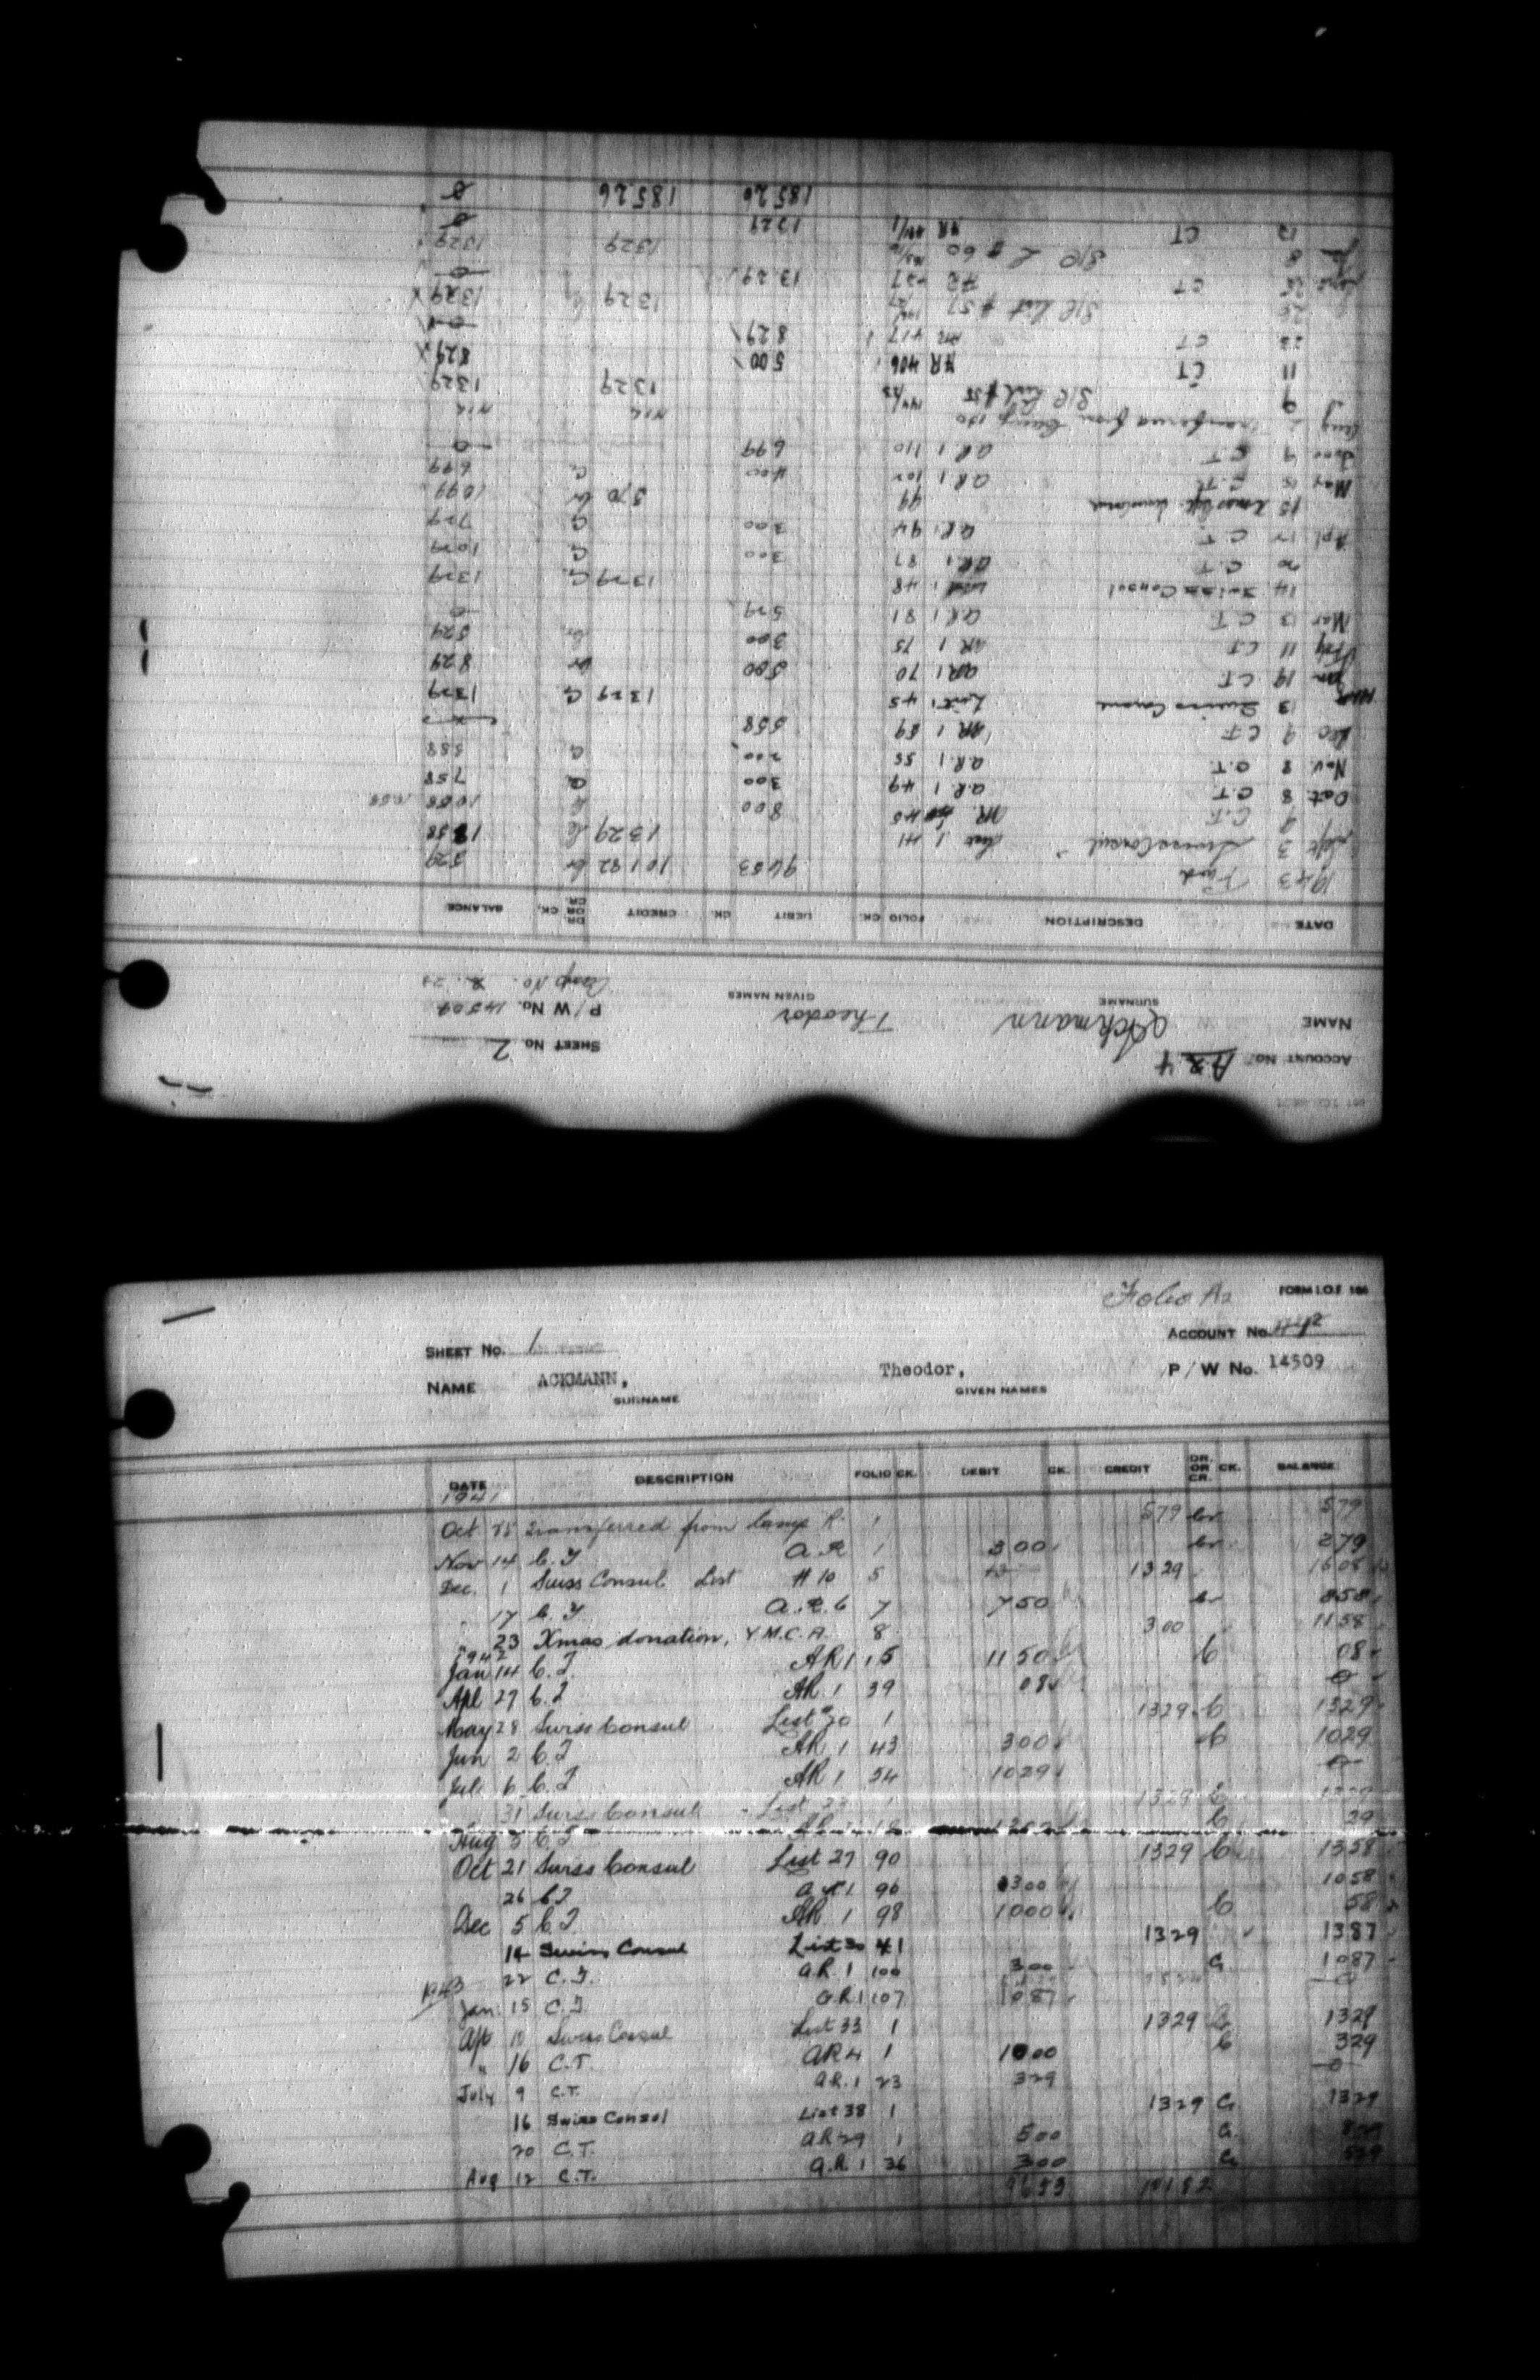 Folio A2
FORM I.O.F 166
SHEET No. 1
ACCOUNT No.
NAME ACKMANN, Theodor, P/W No. 14509
SURNAME GIVEN NAMES
DATE DESCRIPTION FOLIO CK. DEBIT CK. CREDIT DR. OR CR. CK. BALANCE
1941
Oct transferred from Camp R. 1 579 Cr 579
Nov 14 C.T. A.R 1 300 Cr 279
Dec. 1 Swiss Consul List # 10 5 1329 1608
17 C.T. A.R. 6 7 750 Cr 858
" 23 Xmas donation, Y.M.C.A. 8 300 1158
1942
Jan 14 C.T. AR 1 15 1150 C 08
Apl 27 C.T. AR 1 39 08 0
May 28 Swiss Consul List 20 1 1329 C 1329
Jun 2 C.T. AR 1 43 300 C 1029
Jul 6 C.T. AR 1 54 1029 0
31 Swiss Consul List 1 1329 C 1329
Aug 3 C.T. C 29
Oct 21 Swiss Consul List 27 90 1329 C 1358
26 C.T. AR 1 96 300 1058
Dec 5 C.T. AR. 1 98 1000 C 58
14 Swiss Consul List 30 41 1329 1387
22 C.T. A.R. 1 100 300 C 1087
1943
Jan. 15 C.T. A.R 1 107 1087 0
Apr 10 Swiss Consul List 33 1 1329 C 1329
" 16 C.T. AR 4 1 1000 C 329
July 9 C.T. A.R. 1 23 329 0
16 Swiss Consul List 38 1 1329 Cr 1329
20 C.T. A.R 29 1 500 Cr 829
Aug 12 C.T. A.R. 1 36 300 Cr 529
9653 10182
ACCOUNT No. A 24
SHEET No 2
NAME Ackmann Theodor P/W No. 14509
SURNAME GIVEN NAMES Camp No.
DATE DESCRIPTION FOLIO CK. DEBIT CK. CREDIT DR OR CR. CK. BALANCE
1943 Fwd 9653 10182 Cr 529
Sept 3 Swiss Consul List 1 41 1329 C 1858
9 C.T. AR. 45 800 1058 1058
Oct 8 C.T. A.R 1 49 300 Cr 758
Nov. 8 C.T. A.R. 1 55 200 Cr 558
Dec 9 C.T. AR 1 59 558
1944 13 Swiss Consul List 1 45 1329 Cr 1329
Jan 19 C.T. AR 1 70 500 Cr 829
Feby 11 C.T. AR 1 75 300 Cr 529
Mar 13 C.T. A.R 1 81 529 0
14 Swiss Consul List 1 48 1329 Cr 1329
20 C.T. A.R. 1 87 300 Cr 1029
Apl 17 C.T. A.R. 1 94 300 Cr 729
15 99 370 Cr 1099
May 15 C.T. A.R 1 102 400 Cr 699
June 9 C.T. A.R 1 110 699 0
Aug transferred from Camp 130 NIL NIL
9 S/R List #55 1329 1329
11 CT AR 406 500 829
23 CT AR 417 829 0
S/R List #57 1329 1329
CT AR 427 1329 0
Jan 8 S/R L # 60 1329 1329
12 CT AR 441 1329 0
18526 18526 0